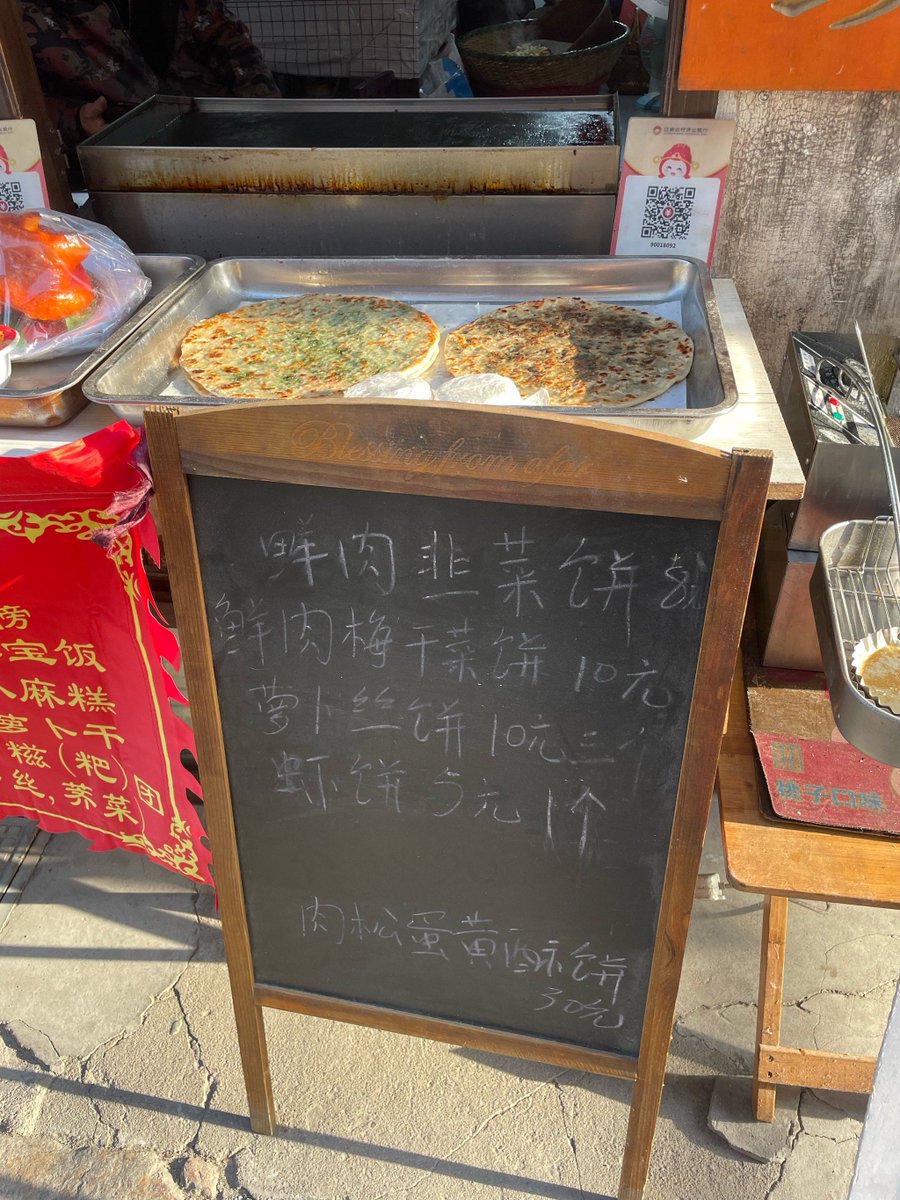 90018092
Blessing from afar
鲜肉韭菜饼 8元
鲜肉梅干菜饼 10元
萝卜丝饼 10元三个
虾饼 5元 1个
肉松蛋黄酥饼
30元
宝饭
麻糕
萝卜干
糍(粑)团
丝,荠菜
桃子口味